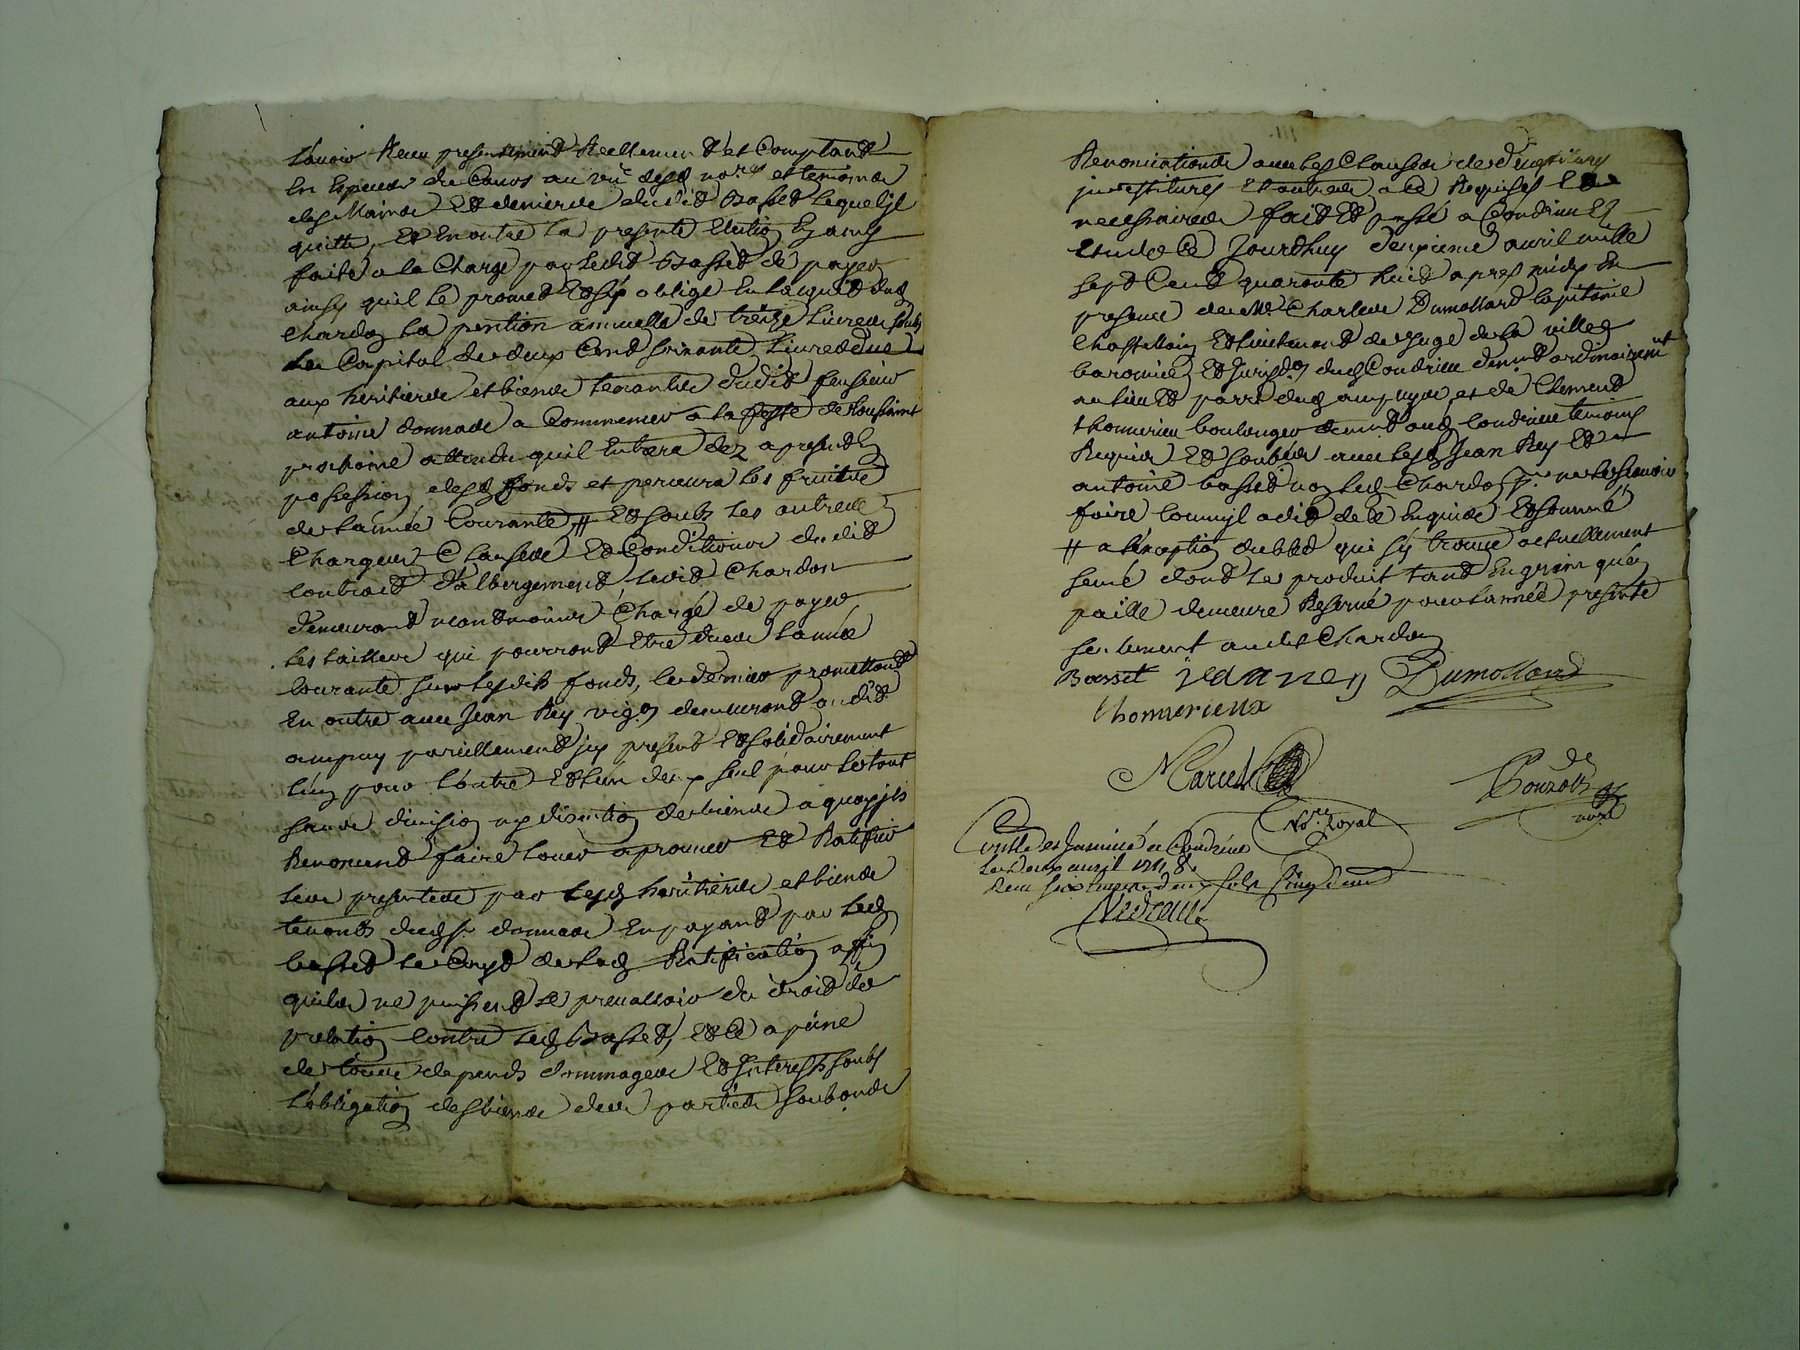 L'avoir Receu presentement Reellement et Comptant
En Especes de Cours au vu desd nores et temoins
des Mains Et deniers dudit Basset lequel il
quitte, Et En outre la presente Election En amy
faite a la Charge par ledit Basset de payer
ainsy quil le promet Et s'y oblige En l'acquit dud
Chardon la pention annuelle de treize Livres soubs
le Capital de deux Cent soixante Livres due
aux heritiers et biens tenants dudit feu sieur
antoine donnade a Commencer a la feste de Toussaint
prochaine attendu quil Entrera dez a present En
possession desd fonds et percevra les fruits
de l'année Courante # Et soubs les autres
Charges Clauses Et Conditions dudit
Contrait d'albergement ledit Chardon
demeurant neantmoins Chargé de payer
les tailles qui pourront Etre dues l'année
Courante sur lesdits fonds, ce dernier promettant
En outre avec Jean Rey vigon demeurant audit
ampuy pareillement icy present Et solidairement
l'un pour l'autre Et l'un deux seul pour le tout
sans division ny discution de biens a quoy ils
Renoncent faire louer aprouver Et Ratifier
ces presentes par lesd heritiers et biens
tenants dud sr donnade En payant par led
basset le Coust de lad Ratification affin
quils ne puissent se prevalloir du droit de
prelation Contre led Basset, Et Ce a peine
de tous depends dommages Et Interests soubs
l'obligation des biens des parties soubmis
Renonciations avec les Clauses de
investitures Et autres a ce Requises Et
necessaires fait Et passé a Condrieu En
Etude Ce Jourdhuy deuxieme avril mille
sept Cent quarante huit apres midy En
presence de Me Charles Dumollard Capitaine
Chastellain Et lieutenant de Juge de la ville
baronnie Et Jurisdon dud Condrieu demt ordinairement
au lieu Et parre dud ampuy, et de Clement
thonnerieu boulanger demt aud Condrieu temoins
Requis Et soubsés avec lesd Jean Rey Et
antoine basset non led Chardon pr ne le scavoir
faire Comm'il a dit de ce Enquis Et sommé
# a l'exception du bled qui s'y trouve actuellement
semé dont le produit tant En grain quen
paille demeure Reservé pour l'année presente
seulement audit Chardon
Basset Jean rey Dumollard
thonnerieux
Marcel
Nore Royal
Conllé et Insinué a Condrieu
le deux avril 1748.
Receu six livres deux sols six den